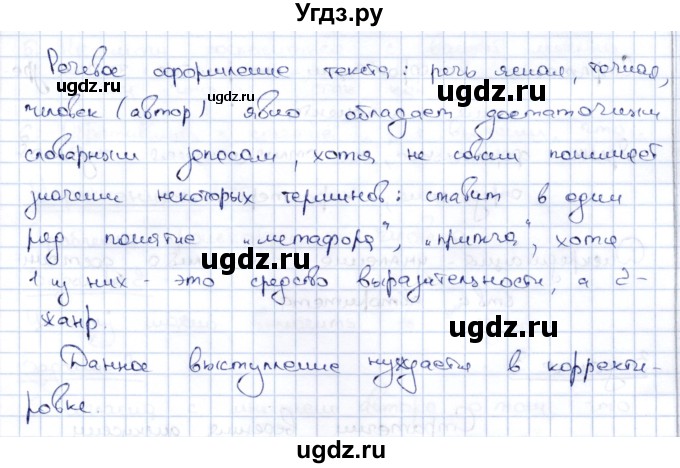 Угдз.ру
Речевое оформление текста: речь ясная, точная,
человек (автор) явно обладает достаточным
словарным запасом, хотя не совсем понимает
значение некоторых терминов: ставит в один
ряд понятие „метафора", „притча", хотя
1 из них - это средство выразительности, а 2-
жанр.
Данное выступление нуждается в корректи-
ровке.
ugdz.ru
ugdz.ru
ugdz.ru
ugdz.ru
ugdz.ru
ugdz.ru
ugdz.ru
ugdz.ru
ugdz.ru